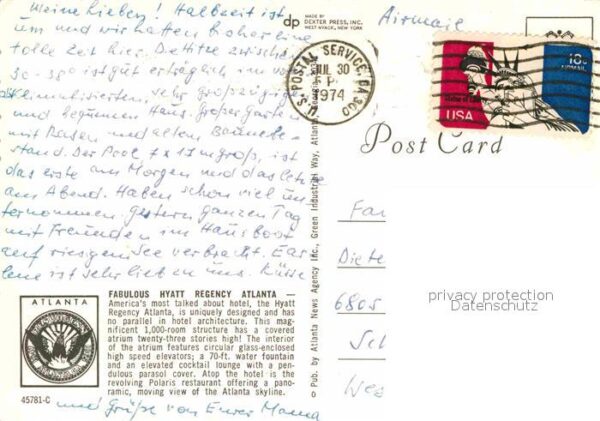 Meine Lieben! Halbzeit ist
um und wir hatten bisher eine
tolle Zeit hier. Die Hitze zwischen
30-38° ist gut erträglich im
klimatisierten, sehr großzügigen
und bequemen Haus. Großer Garten
mit Rasen und altem Baumbe-
stand. Der Pool, 7 x 17 m groß, ist
das erste am Morgen und das letzte
am Abend. Haben schon viel un-
ternommen. Gestern ganzen Tag
mit Freunden im Hausboot
auf riesigem See verbracht.
ist sehr lieb zu uns. Küsse
und Grüße von Eurer Mama
dp
MADE BY
DEXTER PRESS, INC.
WEST NYACK, NEW YORK
Airmail
U.S. POSTAL SERVICE, GA 300
JUL 30
1974
18c
AIRMAIL
USA
Post Card
Fa
Diete
6805
Sch
Wes
privacy protection
Datenschutz
Pub. by Atlanta News Agency Inc., Green Industrial Way, Atlanta
ATLANTA
45781-C
FABULOUS HYATT REGENCY ATLANTA —
America's most talked about hotel, the Hyatt
Regency Atlanta, is uniquely designed and has
no parallel in hotel architecture. This mag-
nificent 1,000-room structure has a covered
atrium twenty-three stories high! The interior
of the atrium features circular glass-enclosed
high speed elevators; a 70-ft. water fountain
and an elevated cocktail lounge with a pen-
dulous parasol cover. Atop the hotel is the
revolving Polaris restaurant offering a pano-
ramic, moving view of the Atlanta skyline.